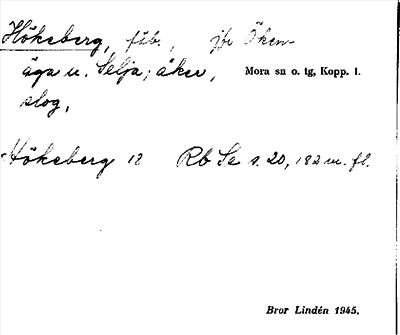 Hökeberg, fäb., jfr Öken
äga u. Selja; åker, Mora sn o. tg, Kopp. l.
slog,
Hökeberg 12 Rb Se s. 20, 182 m. fl.
Bror Lindén 1945.